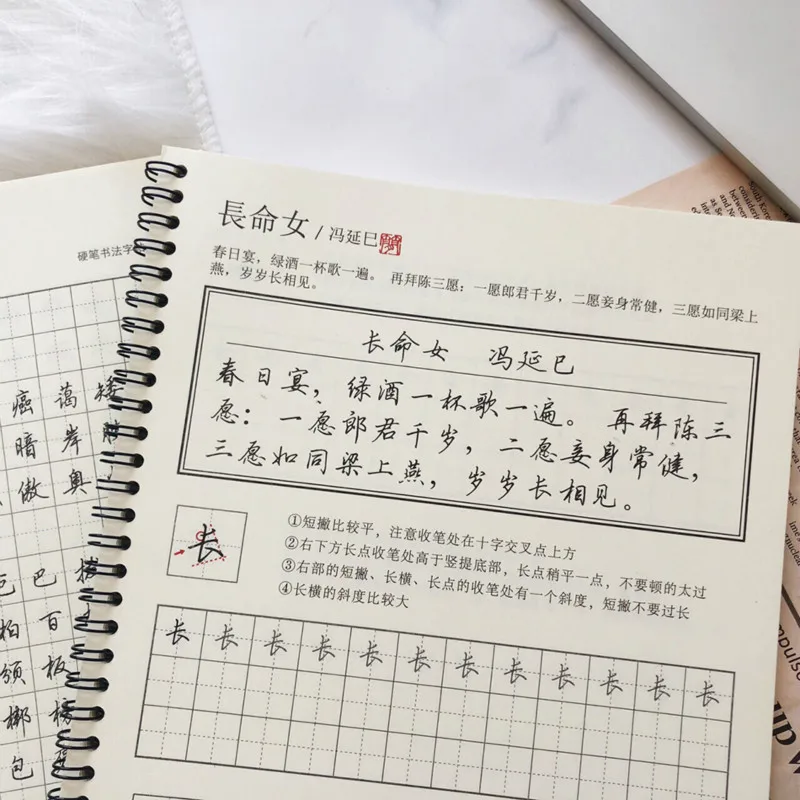 硬笔书法字
癌 蔼 矮
暗 岸
傲 奥
巴
柏 百
颁 板
梆 榜
包
長命女 / 冯延巳
春日宴，绿酒一杯歌一遍。 再拜陈三愿：一愿郎君千岁，二愿妾身常健，三愿如同梁上
燕，岁岁长相见。
长命女 冯延巳
春日宴，绿酒一杯歌一遍。 再拜陈三
愿：一愿郎君千岁，二愿妾身常健，
三愿如同梁上燕，岁岁长相见。
长
①短撇比较平，注意收笔处在十字交叉点上方
②右下方长点收笔处高于竖提底部，长点稍平一点，不要顿的太过
③右部的短撇、长横、长点的收笔处有一个斜度，短撇不要过长
④长横的斜度比较大
长 长 长 长 长 长 长 长 长 长 长 长
South Kor
considerin
between